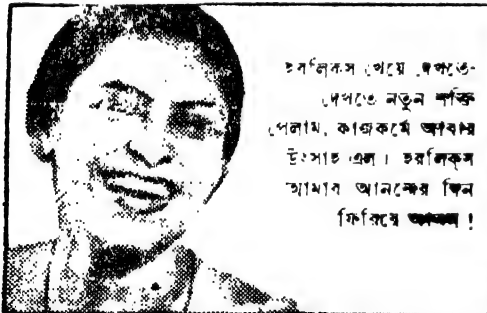 হরলিকস খেয়ে দেখতে-
দেখতে নতুন শক্তি
পেলাম, কাজকর্মে আবার
উৎসাহ এল। হরলিক্‌স
আমার আনন্দের দিন
ফিরিয়ে আনল !